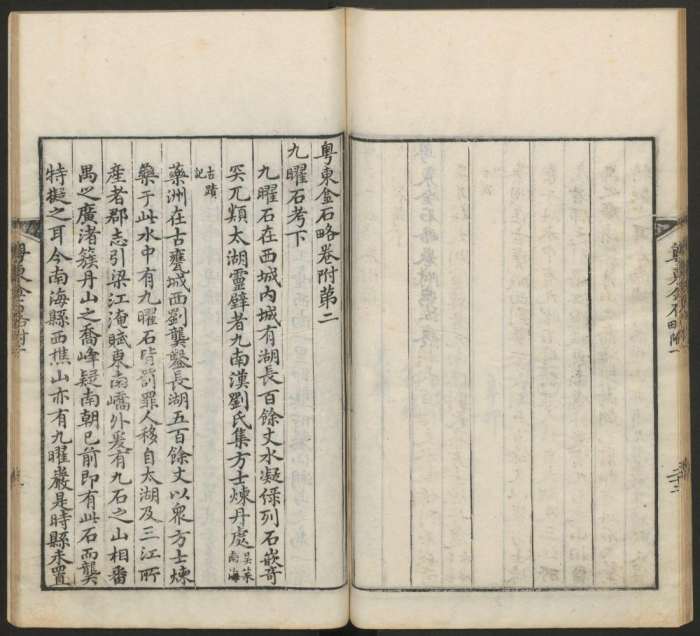 粵東金石略附一
二十二
粵東金石略卷附第二
九曜石考下
九曜石在西城内城有湖長百餘丈水凝綠列石嵌奇
突兀類太湖靈壁者九南漢劉氏集方士煉丹處吳萊南海
古蹟記
藥洲在古甕城西劉龑鑿長湖五百餘丈以聚方士煉
藥于此水中有九曜石皆罰罪人移自太湖及三江所
産者郡志引梁江淹賦東南嶠外爰有九石之山相番
禺之廣渚簇丹山之喬峰疑南朝已前即有此石而龑
特擬之耳今南海縣西樵山亦有九曜巖是時縣未置
粵東金石略附